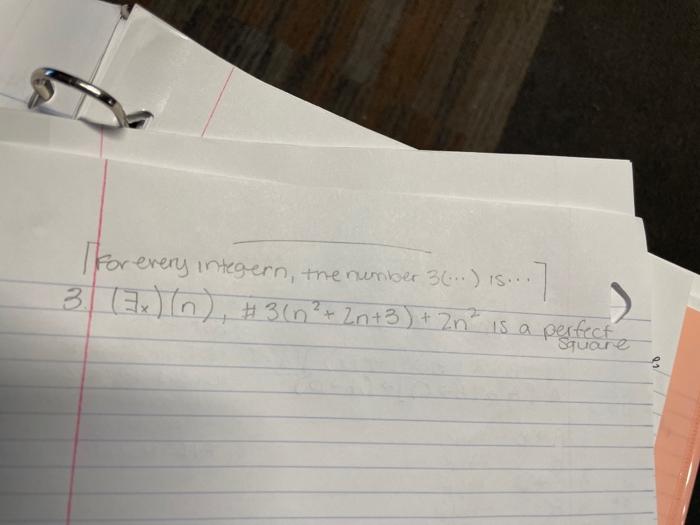 [For every integern, the number 3(...) is...]
3. (∃x)(n), # 3(n² + 2n+3) + 2n² is a perfect
square